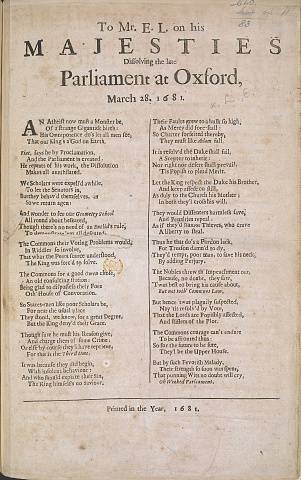 To Mr. E. L. on his
MAJESTIES
Dissolving the late
Parliament at Oxford,
March 28. 1681.
AN Atheist now must a Monster be,
Of strange Gigantick birth:
His Omnipotence do's let all men see,
That our King's a God on Earth.
Fiat, says he by Proclamation,
And the Parliament is created:
He repents of his work, the Dissolution
Makes all annihilated.
We Scholars were expell'd awhile,
To let the Senators in,
But they behav'd themselves, as
So we return agen:
And wonder to see our Geometry School
All round about be seated,
Though there's no need of an Euclid's rule,
To demonstrate 'em all defeated.
The Commons their Voting Problems would
In Riddles so involve,
That what the Peers scarce understood,
The King was forc'd to solve.
The Commons for a good Omen chose,
An old consulting station
Being glad to dispossess their Foes
Oth' House of Convocation.
So States-men like poor Scholars be,
For near the usual place
They stood, we know, for a great Degree,
But the King deny'd their Grace.
Though sure he must his Reason give,
And charge them of some Crime:
Or else by course they'l have reprieve,
For this is the Third time.
It was because they did begin,
With insolent behaviour:
And who should expiate their Sin,
The King himself's no Saviour.
Their Faults grew to a bulk so high,
As Mercy did fore-stall:
So Charter forfeited thereby,
They must like Adam fall.
It is resolv'd the Duke shall fall,
A Scepter to inherit:
Nor right nor desert shall prevail:
'Tis Popish to plead Merit.
Let the King respect the Duke his Brother,
And keep affection still,
As duty to the Church his Mother;
In both they'l cross his will.
They would Dissenters harmless save,
And Penalties repeal:
As if they'd humour Thieves, who crave
A liberty to steal.
Thus he that do's a Pardon lack,
For Treason damn'd to dy,
They'd tempt, poor man, to save his neck,
By adding Perjury.
The Nobles threw th' Impeachment out,
Because, no doubt, they saw,
'Twas best to bring his cause about,
But not to th' Common Law.
But hence 'twas plaguily suspected,
Nay 'tis resolv'd by Vote,
That the Lords are Popishly affected,
And stiflers of the Plot.
The Commons courage can't endure
To be affronted thus:
So for the future to be sure,
They'l be the Upper House.
But by such Feverish Malady,
Their strength so soon was spent,
That punning Wits no doubt will cry,
Oh Weaked Parliament.
Printed in the Year, 1681.